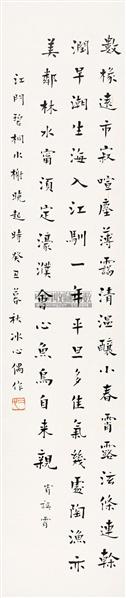 數椽遠市寂喧塵薄靄清溫釀小春宵露泫條連榦
潤早潮生海入江馴一年平旦多佳氣幾處陶漁亦
美鄰林水甯須定濠濮會心魚鳥自来親
江門碧桐水榭曉起時癸丑暮秋冰心偶作